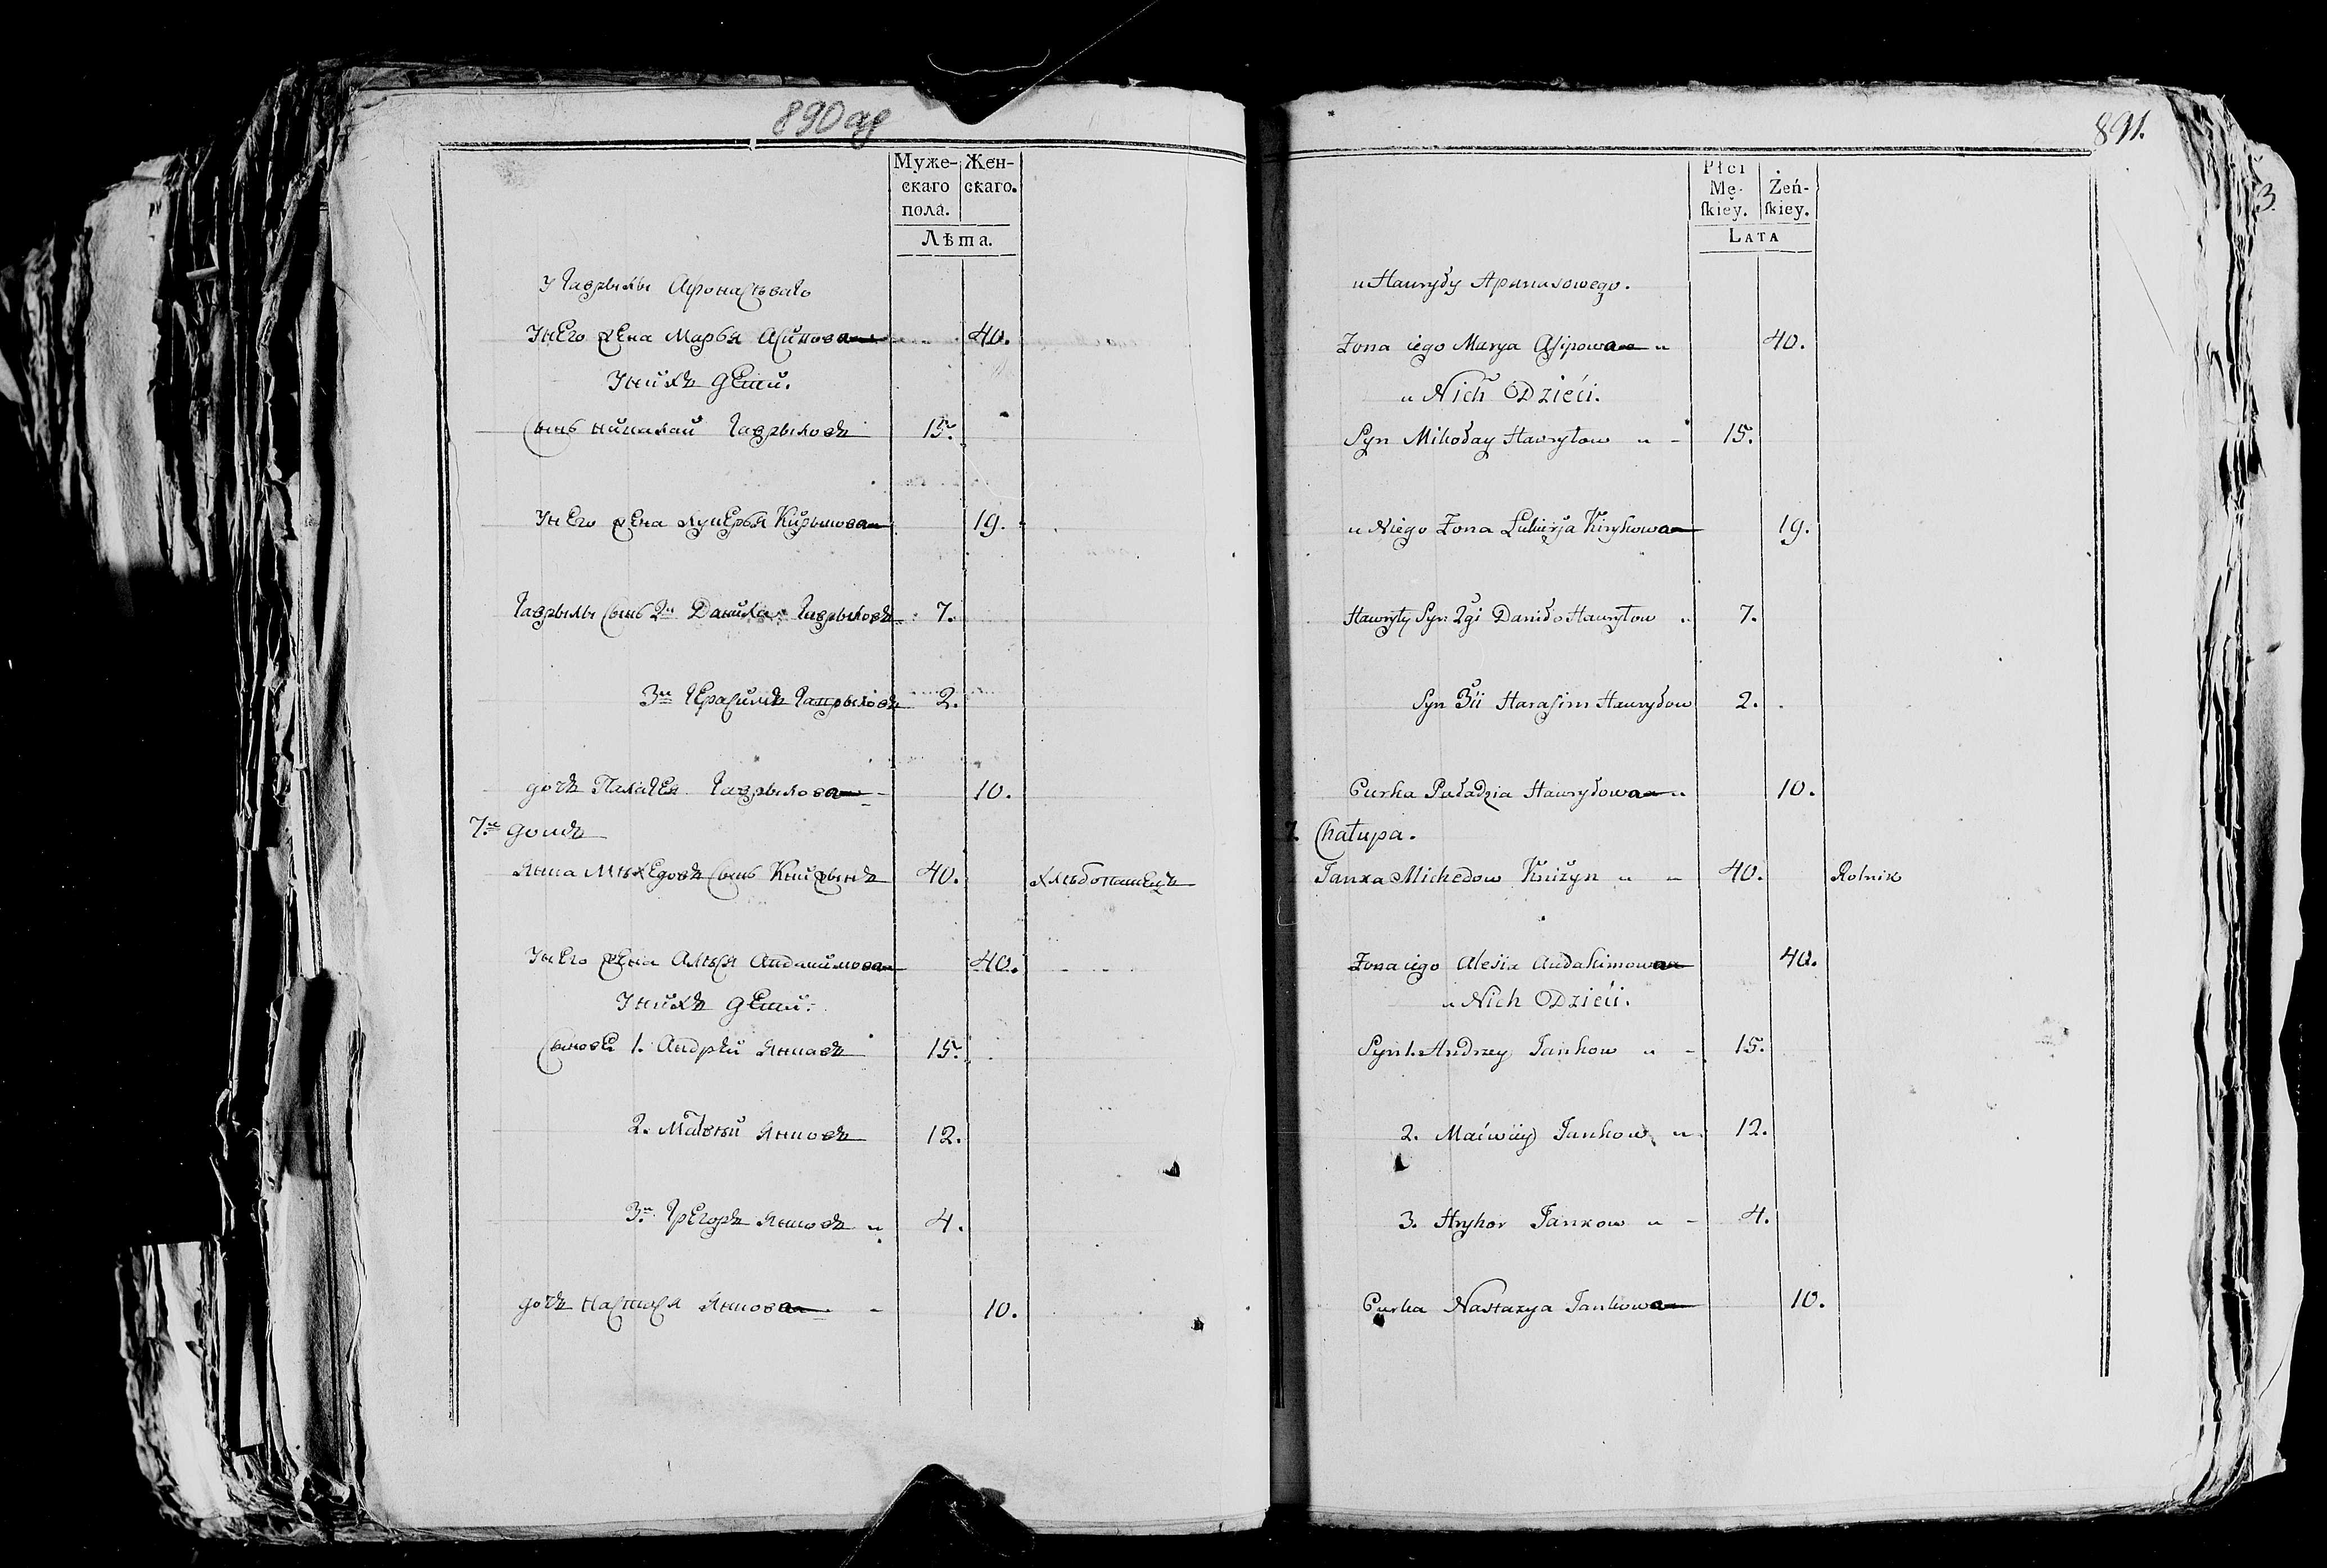 890 об
Муже- Жен-
скаго скаго.
пола.
Лѣта.
У Гаврылы Афонасьваго
Унего жена Марья Асипова 40.
Унихъ дети.
Сынъ николай Гаврыловъ 15.
Унего жена лукерья Кирыкова 19.
Гаврылы Сынъ 2й Данила Гаврыловъ 7.
3й Герасимъ Гаврыловъ 2.
дочъ Палагея Гаврылова 10.
7й домъ
Янка Михедовъ Сынъ Книжынъ 40. хлѣбопашецъ
Унего жена Алеся Авдакимова 40.
Унихъ дети.
Сыновья 1. Андрей Янковъ 15.
2. Матвѣй Янковъ 12.
3й Грегоръ Янковъ 4.
дочъ настася Янкова 10.
891.
3.
Płci
Mę- Żeń-
ſkiey. ſkiey.
LATA
u Hawryły Apanasowego.
Żona iego Marya Asipowa 40.
u Nich Dzieci.
Syn Mikołay Hawryłow 15.
u Niego Żona Łukierja Kirykowa 19.
Hawryły Syn 2gi Daniło Hawryłow 7.
Syn 3ii Harasim Hawryłow 2.
Curka Paładzia Hawryłowa 10.
7. Chałupa.
Janka Michedow Kniżyn 40. Rolnik
Żona iego Alesia Audakimowa 40.
u Nich Dzieci.
Syn 1. Andrzey Jankow 15.
2. Maćwiiy Jankow 12.
3. Hryhor Jankow 4.
Curka Nastazya Jankowa 10.